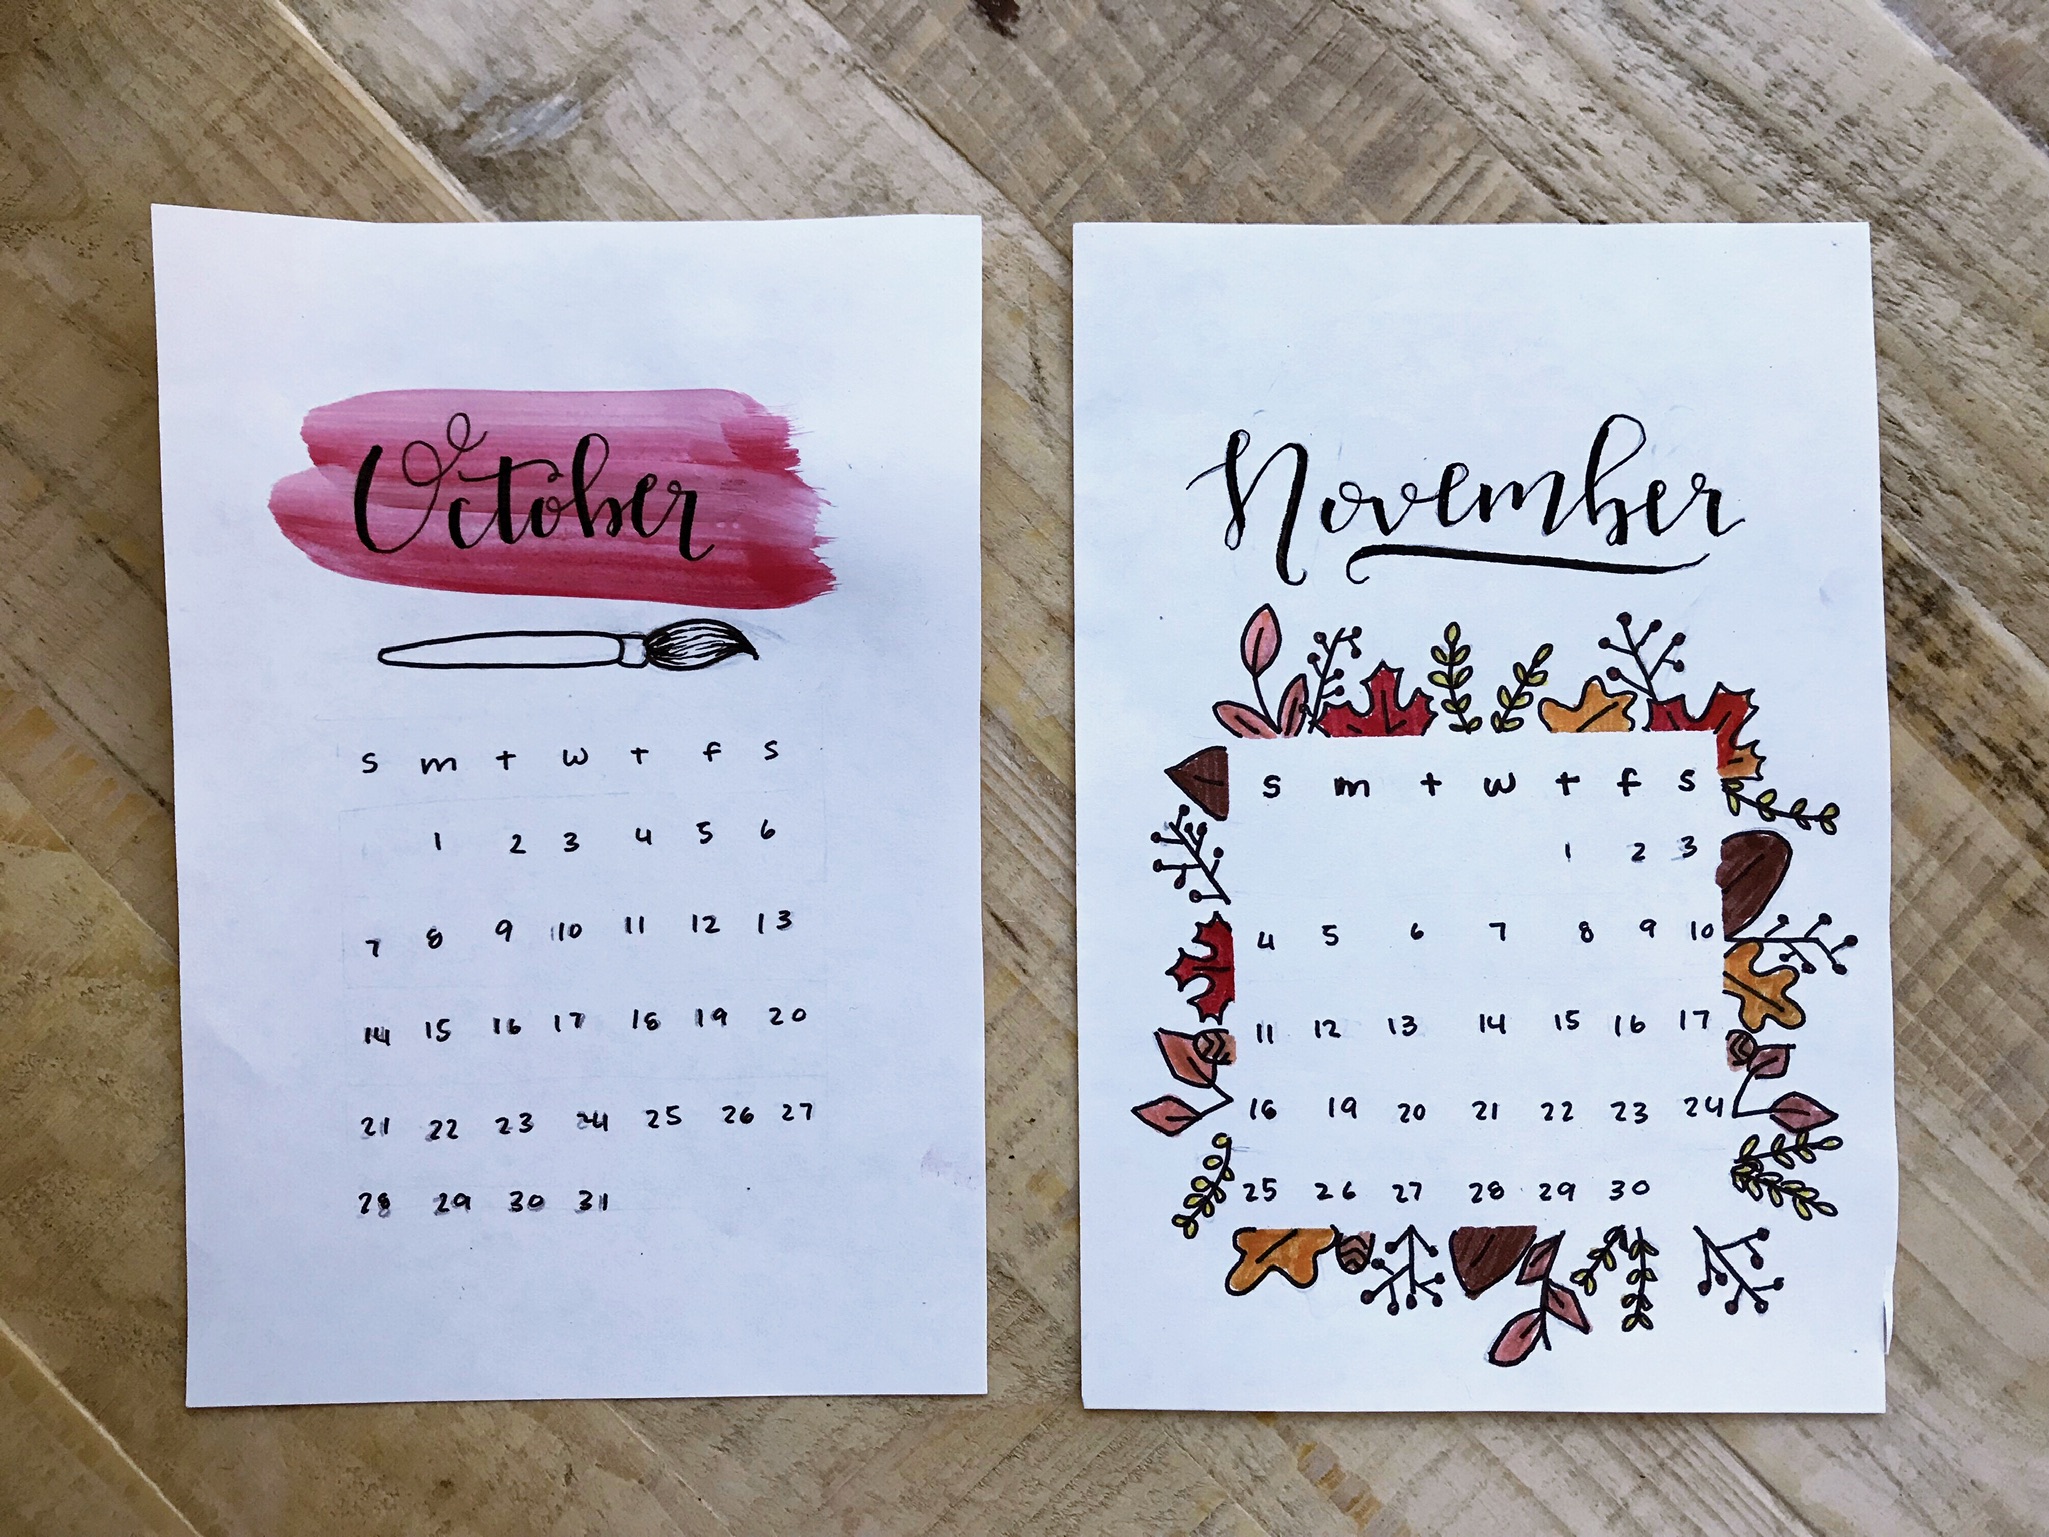 October
s m t w t f s
1 2 3 4 5 6
7 8 9 10 11 12 13
14 15 16 17 18 19 20
21 22 23 24 25 26 27
28 29 30 31
November
s m t w t f s
1 2 3
4 5 6 7 8 9 10
11 12 13 14 15 16 17
18 19 20 21 22 23 24
25 26 27 28 29 30